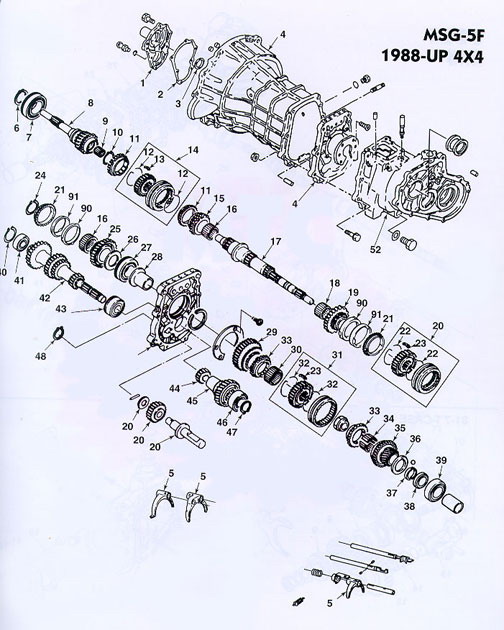 MSG-5F
1988-UP 4X4
4
1
2
3
6
7
8
9
10
11
12
13
14
12
11
15
16
17
24
21
91
90
16
25
26
27
28
40
41
42
43
48
4
52
18
19
90
91
21
20
22
23
22
29
33
30
31
32
23
32
44
45
46
47
20
20
20
33
34
35
36
37
38
39
5
5
5